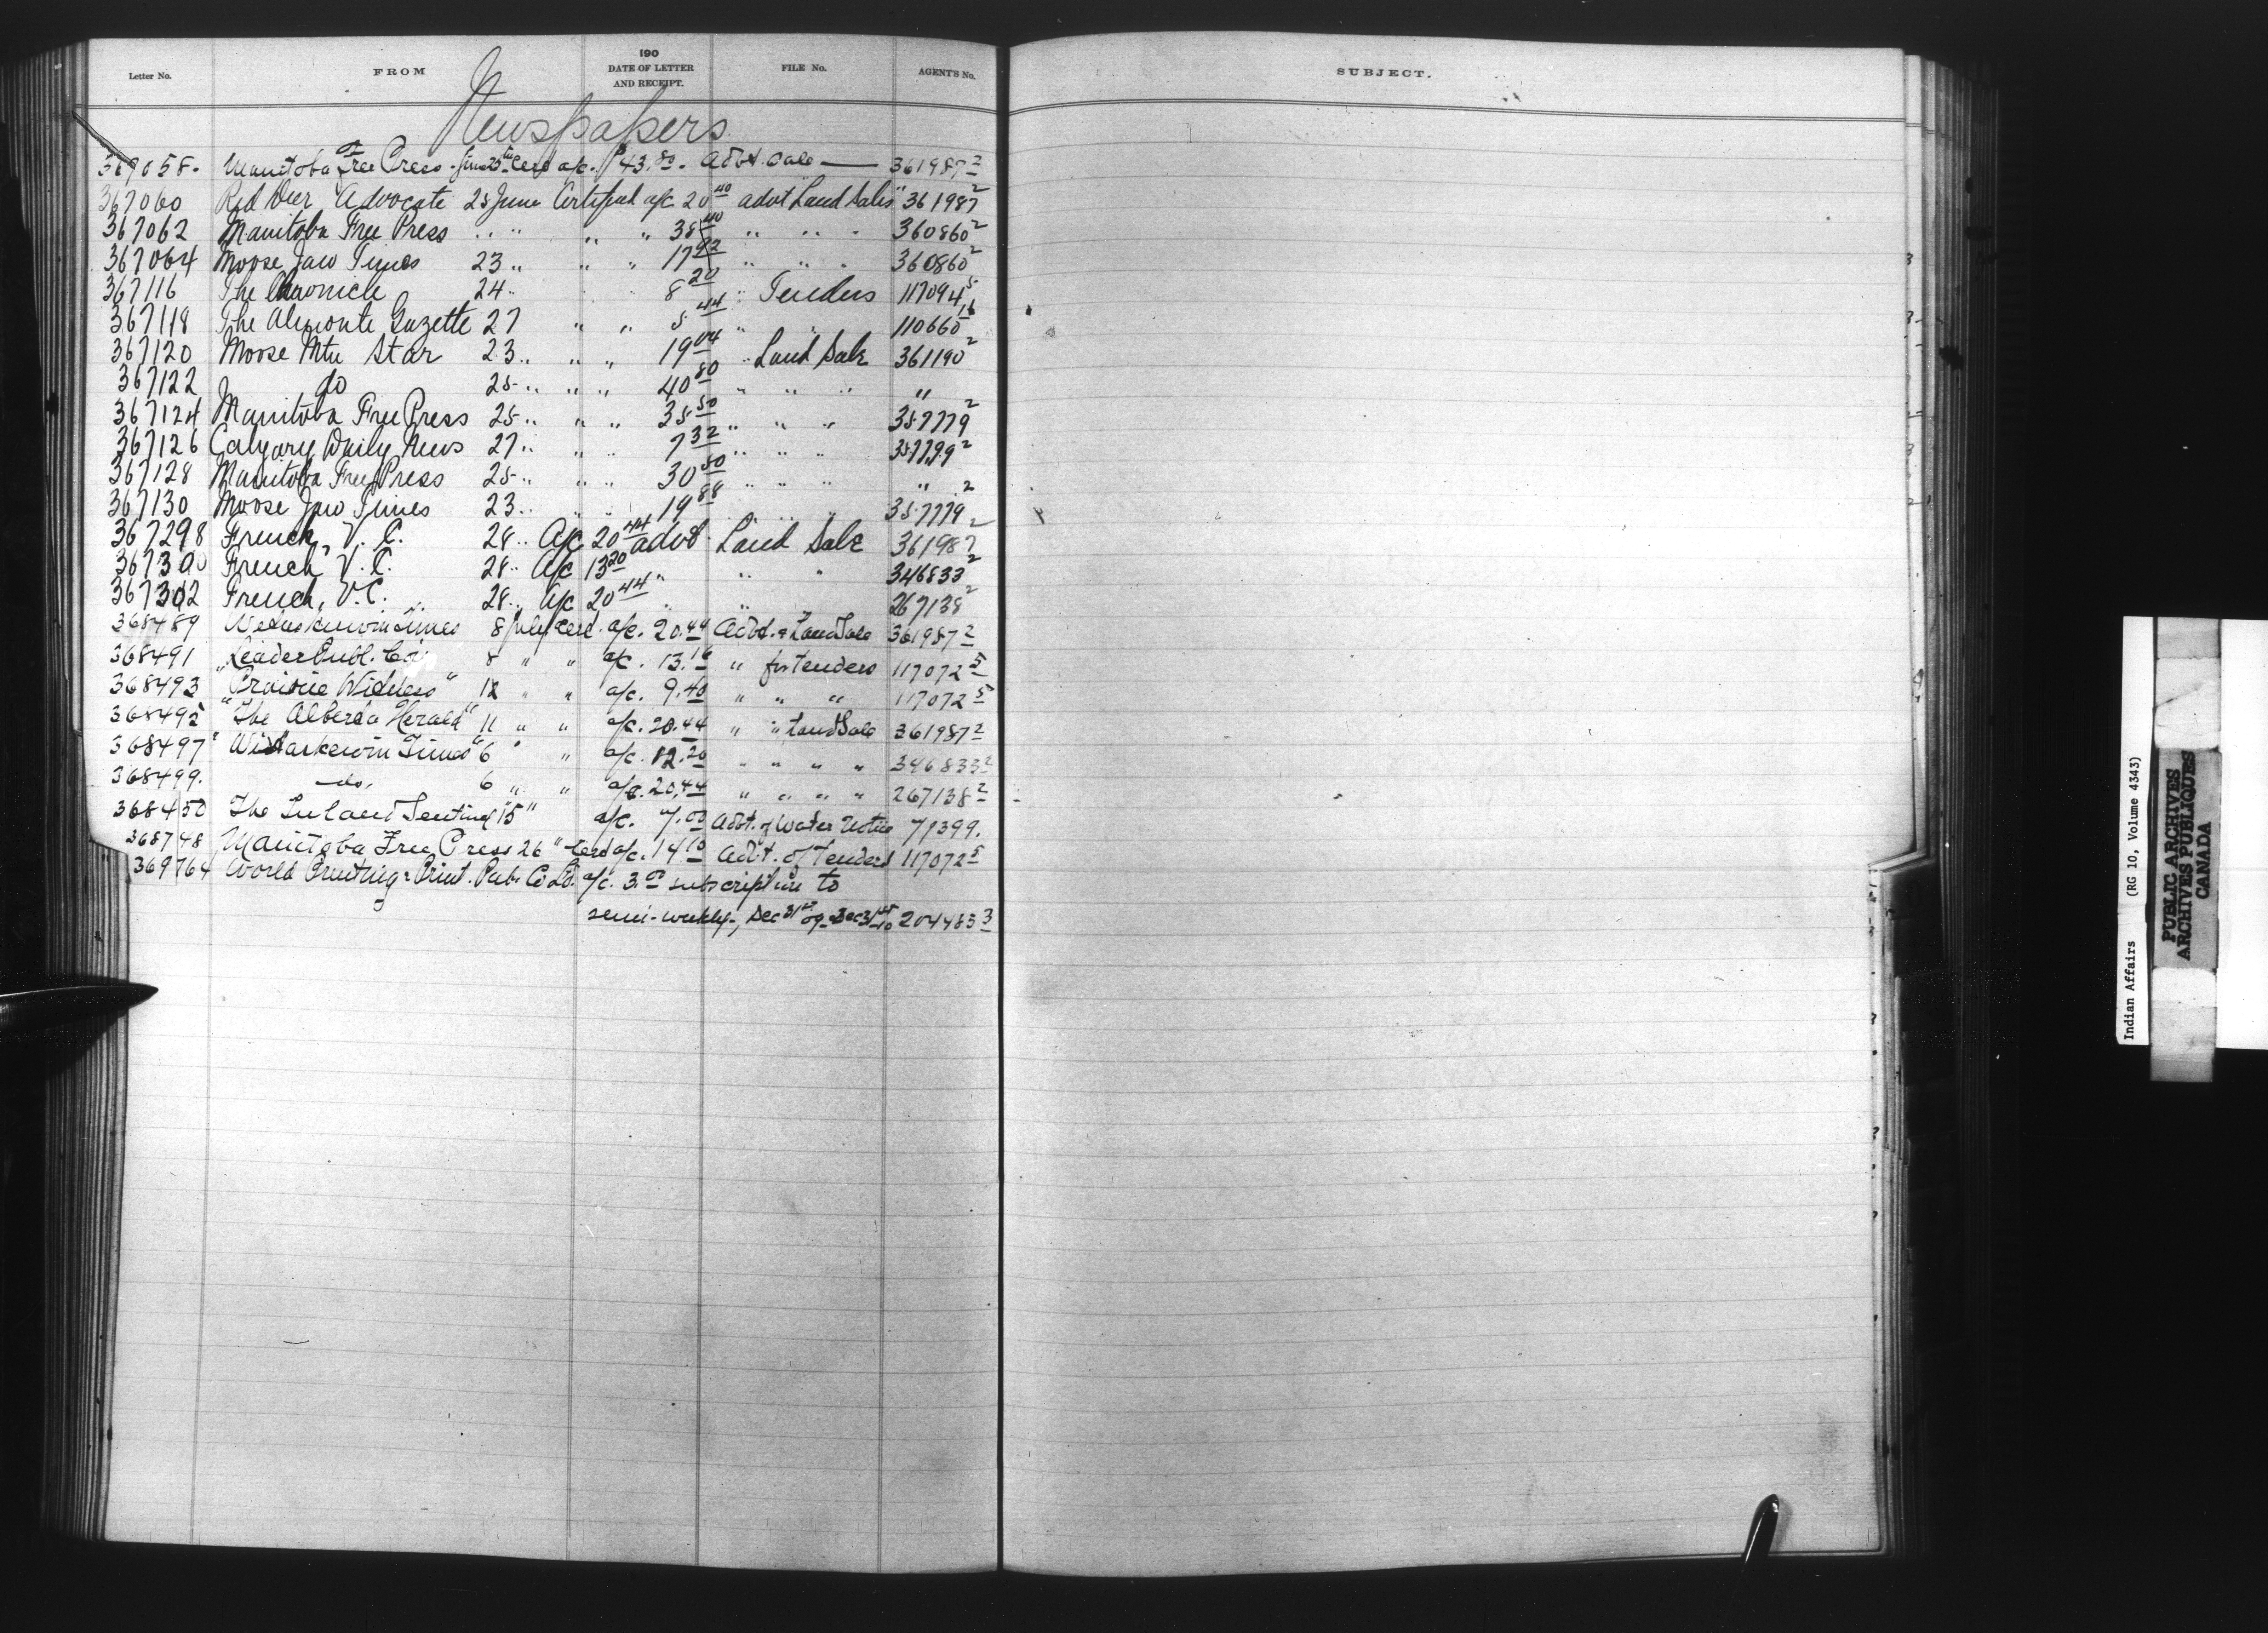 190
Letter No. FROM DATE OF LETTER AND RECEIPT. FILE No. AGENT'S No. SUBJECT.
Newspapers
367058. Manitoba Free Press - June 25th Certd a/c. $43.80. Advt. Sale — 361987 2
367060 Red Deer Advocate 25 June Certified a/c 20 40 advt Land Sales 361987 2
367062 Manitoba Free Press " " " " 38 40 " " " 360860 2
367064 Moose Jaw Times 23 " " " 17 92 " " " 360860 2
367116 The Chronicle 24 " " " 8 20 " Tenders 117094 5
367118 The Almonte Gazette 27 " " 5 44 " " 110660 16
367120 Moose Mtn Star 23 " " " 19 04 " Land Sale 361190 2
367122 do 25 " " " 40 80 " " " "
367124 Manitoba Free Press 25 " " " 35 50 " " " 357779 2
367126 Calgary Daily News 27 " " " 7 32 " " " 357799 2
367128 Manitoba Free Press 25 " " " 30 50 " " " " 2
367130 Moose Jaw Times 23 " " " 19 88 " " " 357779 2
367298 French, V. C. 28 " A/c 20 44 advt Land Sale 361987 2
367300 French, V. C. 28 " A/c 13 20 " " " 346833 2
367302 French, V.C. 28 " A/c 20 44 " " 267138 2
368489 Wetaskiwin Times 8 July Certd. a/c. 20.44 Advt. of Land Sale 361987 2
368491 "Leader Publ. Co. 8 " " a/c. 13.16 " for tenders 117072 5
368493 "Prairie Witness" 12 " " a/c. 9.40 " " " 117072 5
368495 "The Alberta Herald" 11 " " a/c. 20.44 " " Land Sale 361987 2
368497 "Wetaskiwin Times" 6 " " a/c. 12.20 " " " " 346833 2
368499. do. 6 " " a/c. 20.44 " " " " 267138 2
368450 The Inland Sentinel "15" a/c. 7.00 Advt. of Water Notice 71399.
368748 Manitoba Free Press 26 " Certd a/c. 14 10 Advt. of Tenders 117072 5
369764 World Printing & Print. Pub. Co Ltd. a/c. 3.00 subscription to
semi-weekly, Dec 31st 09 - Dec 31st 10 204483 3
Indian Affairs (RG 10, Volume 4343)
PUBLIC ARCHIVES
ARCHIVES PUBLIQUES
CANADA